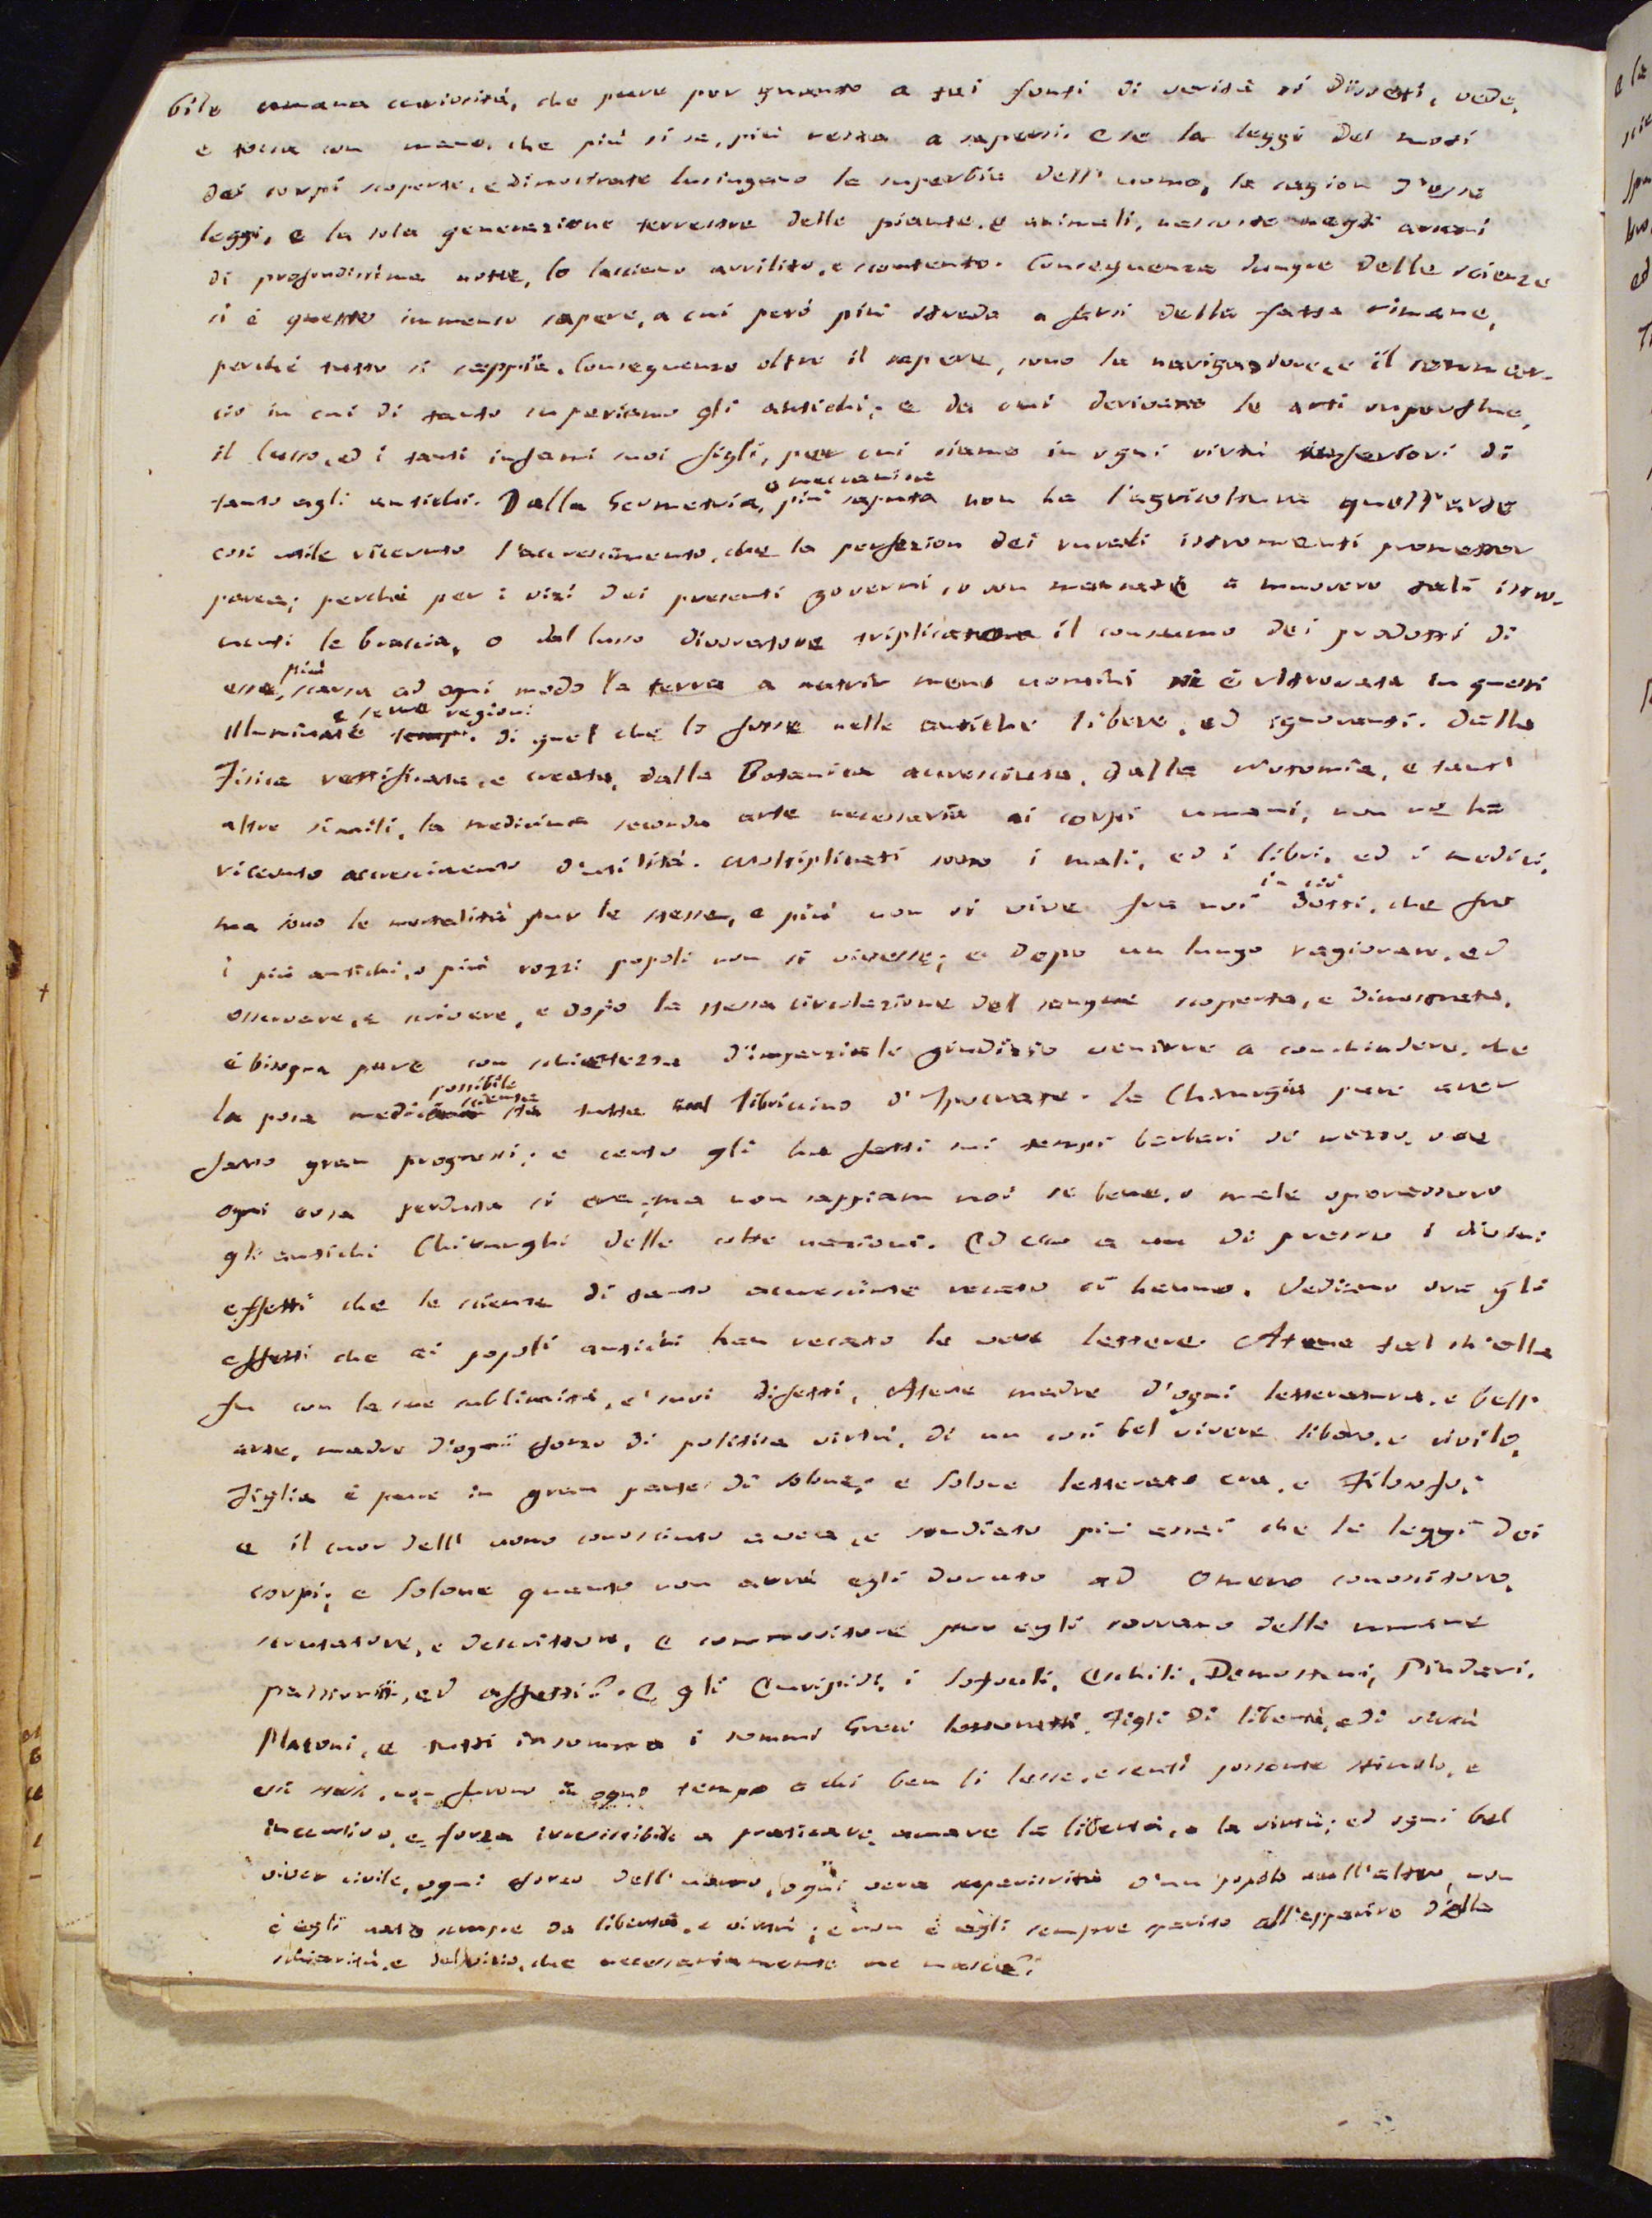 bile umana curiosità, che pure per quanto a tai fonti di verità si disseti, vede,
e tocca con mano, che più si sa, più resta a sapersi. E se le leggi dei moti
dei corpi scoperte, e dimostrate lusingano la superbia dell'uomo, la cagion d'esse
leggi, e la sola generazione terrestre delle piante, e animali, nascoste negli arcani
di profondissima notte, lo lasciano avvilito, e scontento. Conseguenza dunque delle scienze
si è questo immenso sapere, a cui però più strada a farsi della fatta rimane,
perché tutto si sappia. Conseguenze oltre il sapere, sono la navigazione, e il commer-
cio in cui di tanto superiamo gli antichi; e da cui derivano le arti superflue,
il lusso, ed i tanti infami suoi figli, per cui siamo in ogni virtù inferiori di
tanto agli antichi. Dalla Geometria, o meccanica
più saputa non ha l'agricoltura quell'arte
così utile ricevuto l'accrescimento, che la perfezion dei rurali istromenti prometter
parea; perché per i vizi dei presenti governi, o son mancate a muovere tali istro-
menti le braccia, o dal lusso divoratore triplicatone il consumo dei prodotti di
essa, più
scarsa ad ogni modo la terra a nutrir meno uomini si è ritrovata in questi
illuminati e serve regioni
tempi. di quel che lo fosse nelle antiche libere, ed ignoranti. Dalla
Fisica rettificata, e creata, dalla Botanica accresciuta, dalla Notomia, e tant'
altre simili, la medicina seconda arte necessaria ai corpi umani, non ne ha
ricevuto accrescimento d'utilità. Moltiplicati sono i mali, ed i libri, ed i medici,
ma sono le mortalità pur le stesse, e più non si vive fra noi in ciò
dotti, che fra
i più antichi, o più rozzi popoli non si vivesse; e dopo un lungo ragionare, ed
osservare, e scrivere, e dopo la stessa circolazione del sangue scoperta, e dimostrata,
e bisogna pure con schiettezza d'imparziale giudizio venirne a conchiudere, che
la poca possibile
scienza
medica sta tutta nel libriccino d'Ipocrate. La Chirurgia pare aver
fatto gran progressi; e certo gli ha fatti sui tempi barbari di mezzo, ove
ogni cosa perduta si era; ma non sappiam noi se bene, o male operassero
gli antichi Chirurghi delle colte nazioni. Ed ecco a un di presso i divini
effetti che le scienze di tanto accresciute recato ci hanno. Vediamo ora gli
effetti che ai popoli antichi han recato le vere lettere. Atene tal ch'ella
fu con la sua sublimità, e' suoi difetti, Atene madre d'ogni letteratura, e bell'
arte, madre d'ogni sforzo di politica virtù, di un così bel vivere libero, e civile,
figlia è pure in gran parte di Solone; e Solone letterato era, e Filosofo;
e il cuor dell'uomo conosciuto avea, e studiato più assai che le leggi dei
corpi; e Solone quanto non avrà egli dovuto ad Omero conoscitore,
scrutatore, e descrittore, e commovitore pur egli sovrano delle umane
passioni, ed affetti? E gli Euripidi, i Sofocli, Eschili, Demosteni, Pindari,
Platoni, e tutti insomma i sommi Greci letterati, figli di libertà, e di virtù
essi stessi, non furono in ogni tempo a chi ben li lesse, e sentì possente stimolo, e
incentivo, e forza irresistibile a praticare, amare la libertà, e la virtù; ed ogni bel
viver civile, ogni sforzo dell'uomo, ogni vera superiorità d'un popolo sull'altro, non
è egli nato sempre da libertà, e virtù; e non è egli sempre sparito all'apparire della
schiavitù, e del vizio, che necessariamente ne nasce?